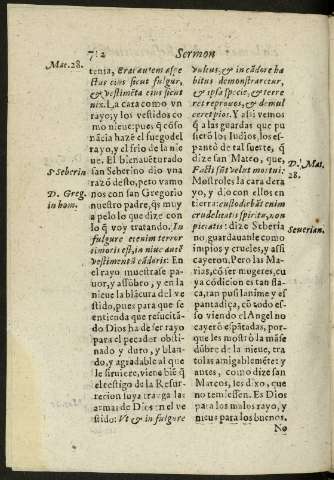 712 Sermon
Mat. 28.
tenia, Erat autem aspe
ctus eius sicut fulgur,
& vestimēta eius sicut
nix. La cara como vn
rayo, y los vestidos co
mo nieue: pues q̄ cōso
nācia hazē el fuego del
rayo, y el frio de la nie
ue. El bienauēturado
S. Seberin
san Seberino dio vna
razō desto, pero vamos
D. Greg.
con san Gregorio
in hom.
nuestro padre, q̄s muy
a pelo lo que dize con
lo q̄ voy tratando. In
fulgure etenim terror
timoris est, in niue autē
vestimentū cādoris: En
el rayo muestrase pa
uor, y assōbro, y en la
nieue la blācura del ve
stido, pues para que se
entienda que resucitā
do Dios ha de ser rayo
para el pecador obsti
nado y duro, y blan
do, y agradable al que
le siruiere, viene biē q̄
el testigo de la Resur
recion suya traiga las
armas de Dios en el ve
stido: Vt & in fulgure
vultus, & in cādore ha
bitus demonstraretur,
& ipsa specie, & terre
ret reprouos, & demul
ceret pios. Y assi vemos
q̄ a las guardas que pu
sierō los Iudios, los espantō
de tal suerte, q̄
dize san Mateo, que,
D. Mat.
28.
Facti sūt velut mortui:
Mostroles la cara de ra
yo, y dio con ellos en
tierra: custodes habēt enim
crudelitatis spiritū, non
pietatis: dize Seberia
Seuerian.
no guardauanle como
impios y crueles, y assi
cayeron. Pero las Ma
rias, cō ser mugeres, cu
ya cōdicion es tan flaca,
tan pusilanime y es
pantadiça, cō todo es
so viendo el Angel no
cayerō espātadas, por
que les mostrò la māse
dūbre de la nieue, tra
tolas amigablemēte: y
assi, como dize san
Marcos, les dixo, que
no temiessen. Es Dios
para los malos rayo, y
nieue para los buenos.
No